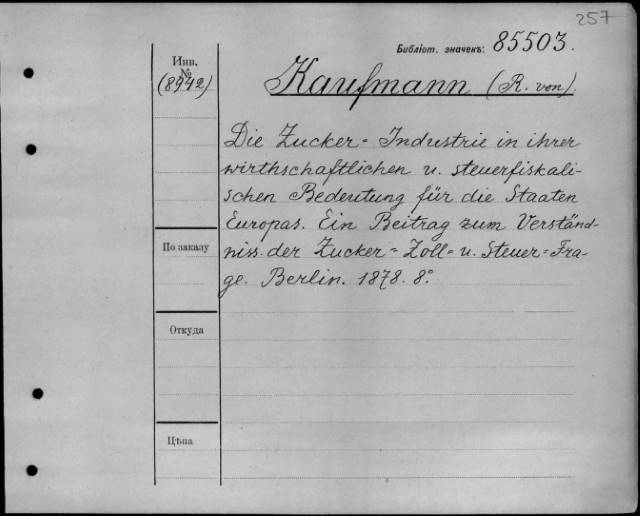 257
Библіот. значекъ: 85503.
Инв.
№
(8942)
Kaufmann (R. von).
Die Zucker= Industrie in ihrer
wirthschaftlichen u. steuerfiskali-
schen Bedeutung für die Staaten
Europas. Ein Beitrag zum Verständ-
niss der Zucker= Zoll= u. Steuer= Fra-
ge. Berlin. 1878. 8°.
По заказу
Откуда
Цѣна